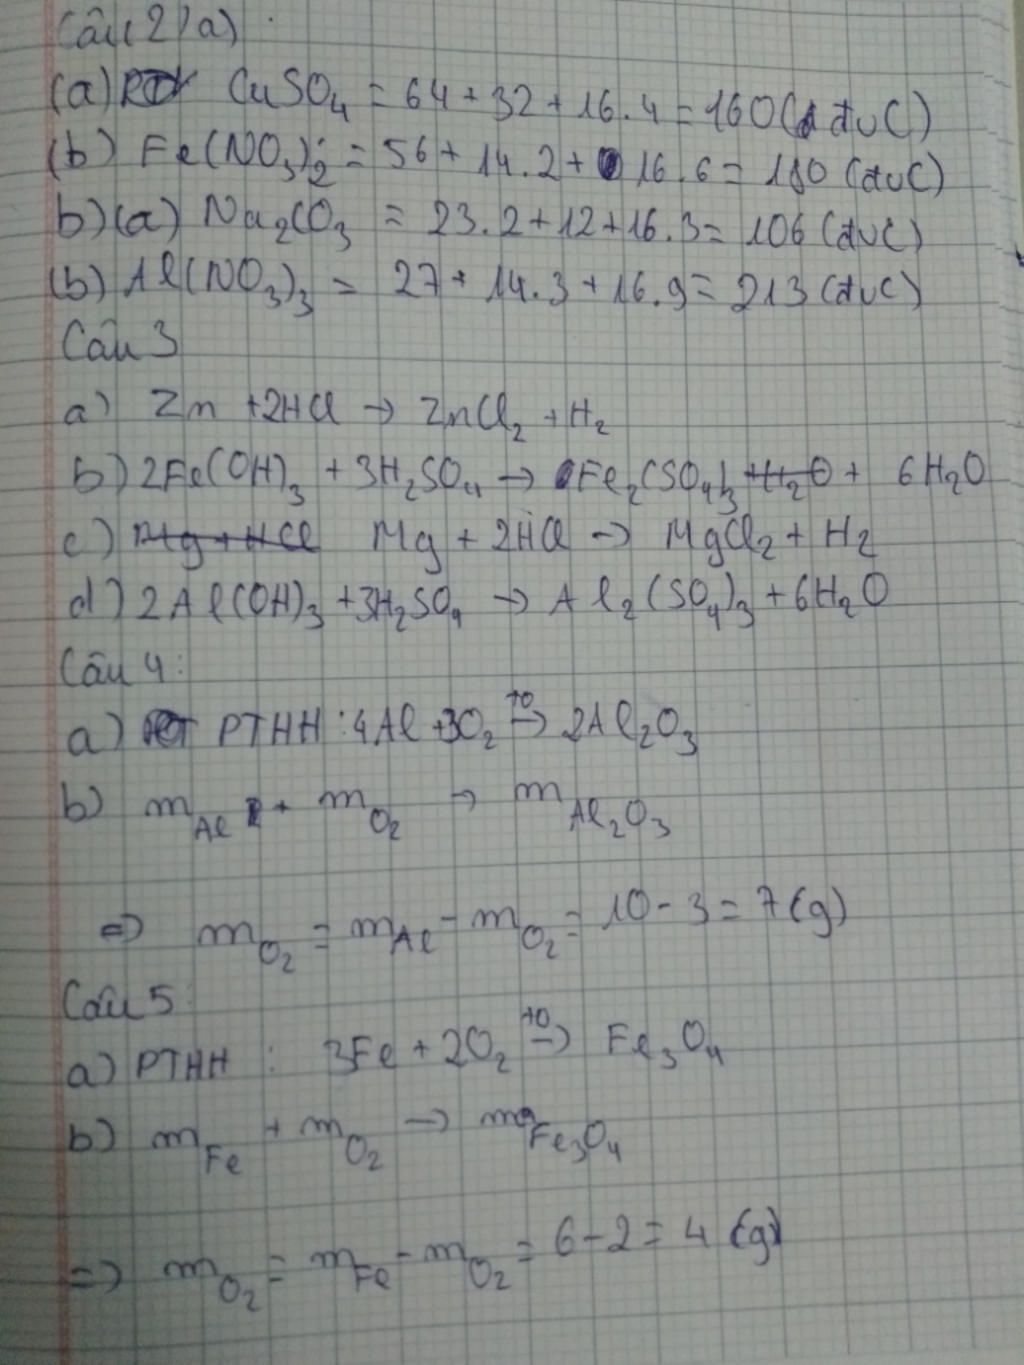 Câu 2/a)
(a) CuSO₄ = 64 + 32 + 16.4 = 160 (đvC)
(b) Fe(NO₃)₂ = 56 + 14.2 + 16.6 = 180 (đvC)
b) (a) Na₂CO₃ = 23.2 + 12 + 16.3 = 106 (đvC)
(b) Al(NO₃)₃ = 27 + 14.3 + 16.9 = 213 (đvC)
Câu 3
a) Zn + 2HCl → ZnCl₂ + H₂
b) 2Fe(OH)₃ + 3H₂SO₄ → Fe₂(SO₄)₃ +H₂O + 6H₂O
c) Mg + HCl Mg + 2HCl → MgCl₂ + H₂
d) 2Al(OH)₃ + 3H₂SO₄ → Al₂(SO₄)₃ + 6H₂O
Câu 4:
a) PTHH : 4Al + 3O₂ →(t⁰) 2Al₂O₃
b) m Al + m O₂ → m Al₂O₃
=> m O₂ = m Al - m O₂ = 10 - 3 = 7 (g)
Câu 5
a) PTHH : 3Fe + 2O₂ →(t⁰) Fe₃O₄
b) m Fe + m O₂ → m Fe₃O₄
=> m O₂ = m Fe - m O₂ = 6 - 2 = 4 (g)